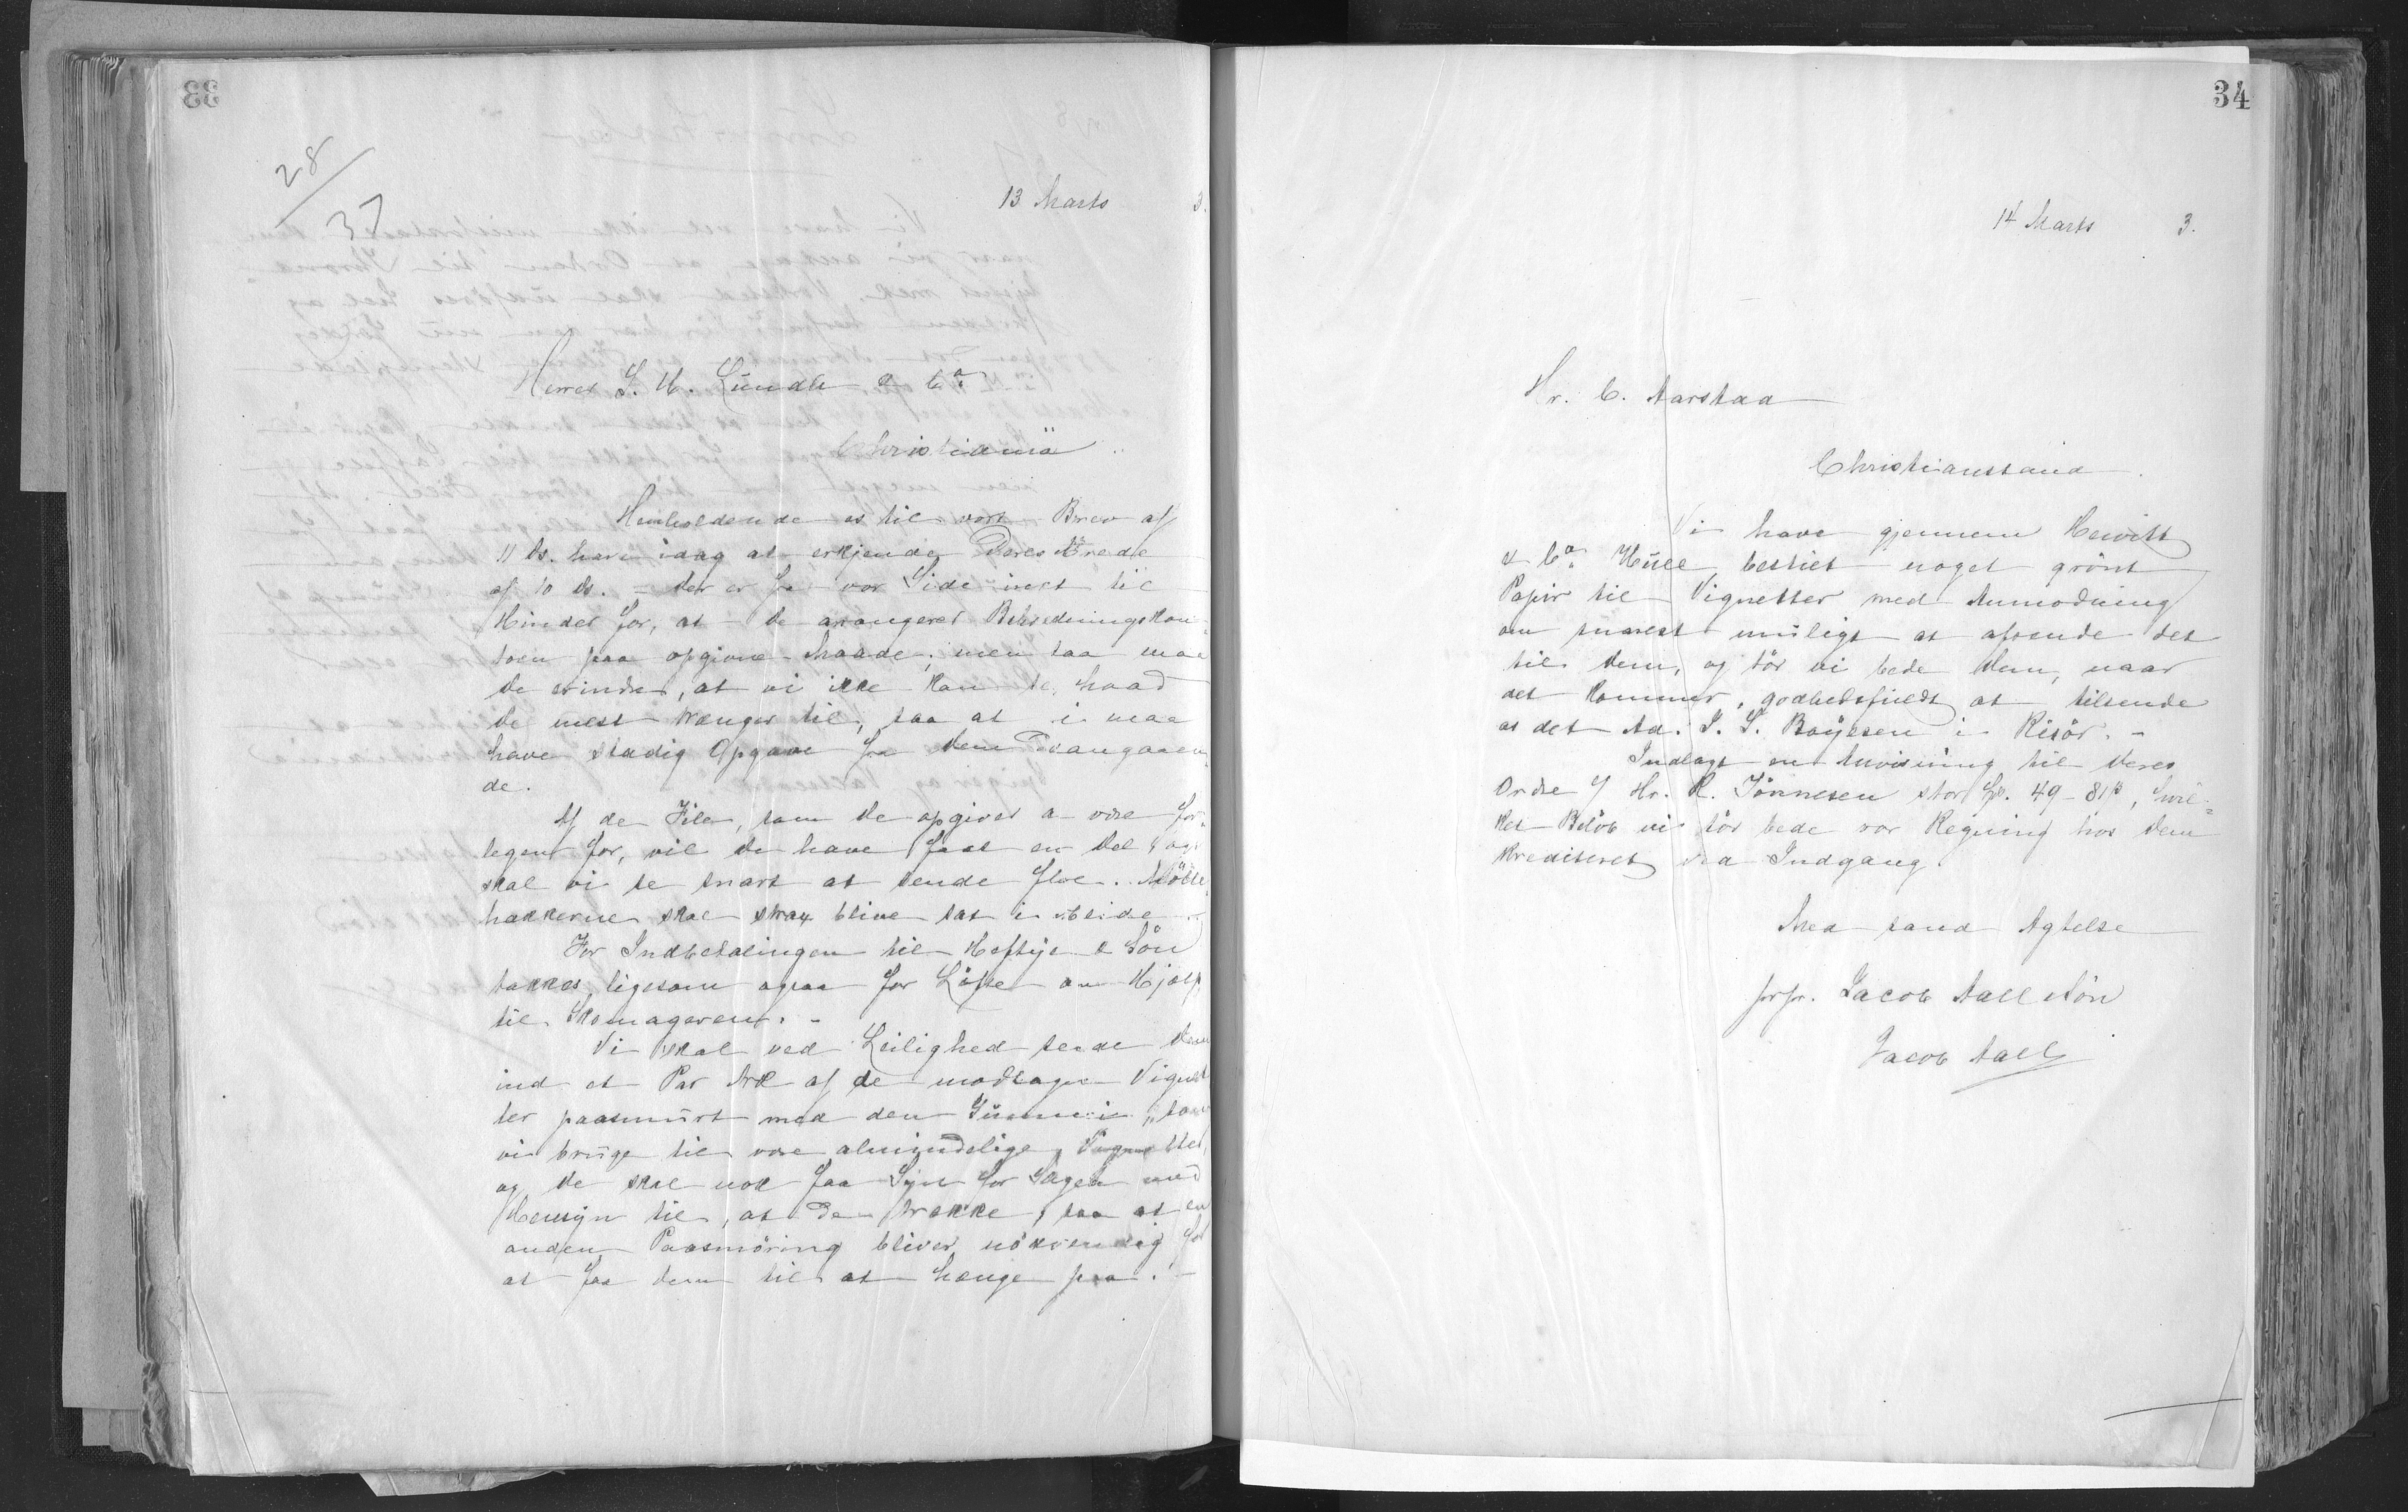 33
28/37
13 Marts 3.
Herrer S. H. Lundh & Co.
Christiania
Henholdende os til vort Brev af
11 ds. have idag at erkjende Deres Ærede
af 10 ds. – Der er fra vor Side intet til
Hinder for, at De arangerer Betrædningskon-
toen paa opgivne Maade; men saa maa
De erindre, at vi ikke kan se, hvad
De mest trænger til, saa at vi maa
have stadig Opgave fra Dem desangaaen-
de.
Af de File, som De opgiver at være for-
legen for, vil De have faaet en Del og
skal vi se snart at sende flere. Mölle-
hakkerne skal strax blive tat i Arbeide
For Indbetalingen til Heftye & Sön
takkes, ligesom ogsaa for Löfte om Hjælp
til Skomageren. –
Vi skal ved Leilighed sende Dem
ind et Par Ark af de modtagne Vignet
ter paasmurt med den Gummi, som
vi bruge til vore almindelige Vignetter,
og De skal nok faa Syn for Sagen med
Hensyn til, at De trække, saa at en
anden Paasmöring bliver nödvendig for
at faa dem til at hænge paa. –
34
14 Marts 3.
Hr. C. Aarstad
Christianssand.
Vi have gjennem Hewitt
& Co. Hull bestilt noget grönt
Papir til Vignetter med Anmodning
om snarest muligt at afsende det
til Dem, og tör vi bede Dem, naar
det kommer, godhedsfuldt at tilsende
os det Ad. S. S. Boÿesen i Risör. –
Indlagt en Anvisning til Deres
Ordre / Hr. R. Tönnesen stor 49 – 81, hvil-
ket Belöb vi tör bede vor Regning hos Dem
krediteret ved Indgang.
Med sand Agtelse
prpr. Jacob Aall & Sön
Jacob Aall